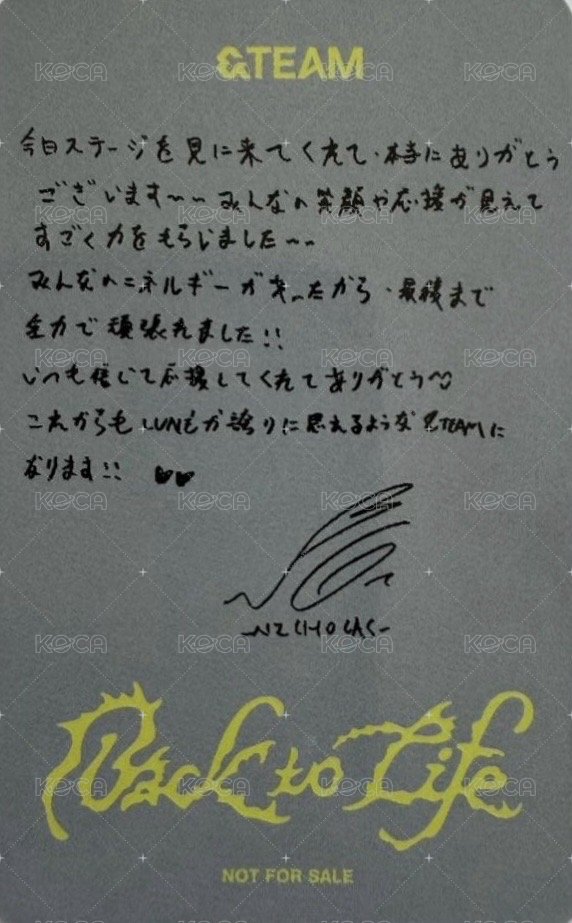 &TEAM
今日ステージを見に来てくれて、本当にありがとう
ございます〜〜みんなの笑顔や応援が見えて
すごく力をもらいました〜〜
みんなのエネルギーがあったから、最後まで
全力で頑張れました!!
いつも信じて応援してくれてありがとう
これからもLUNÉが誇りに思えるような&TEAMに
なります!! ♥♥
NICHOLAS
Back to Life
NOT FOR SALE
KOCA